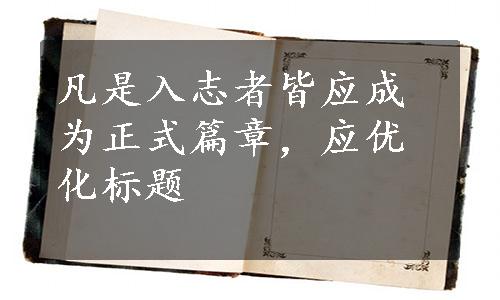 凡是入志者皆应成
为正式篇章，应优
化标题